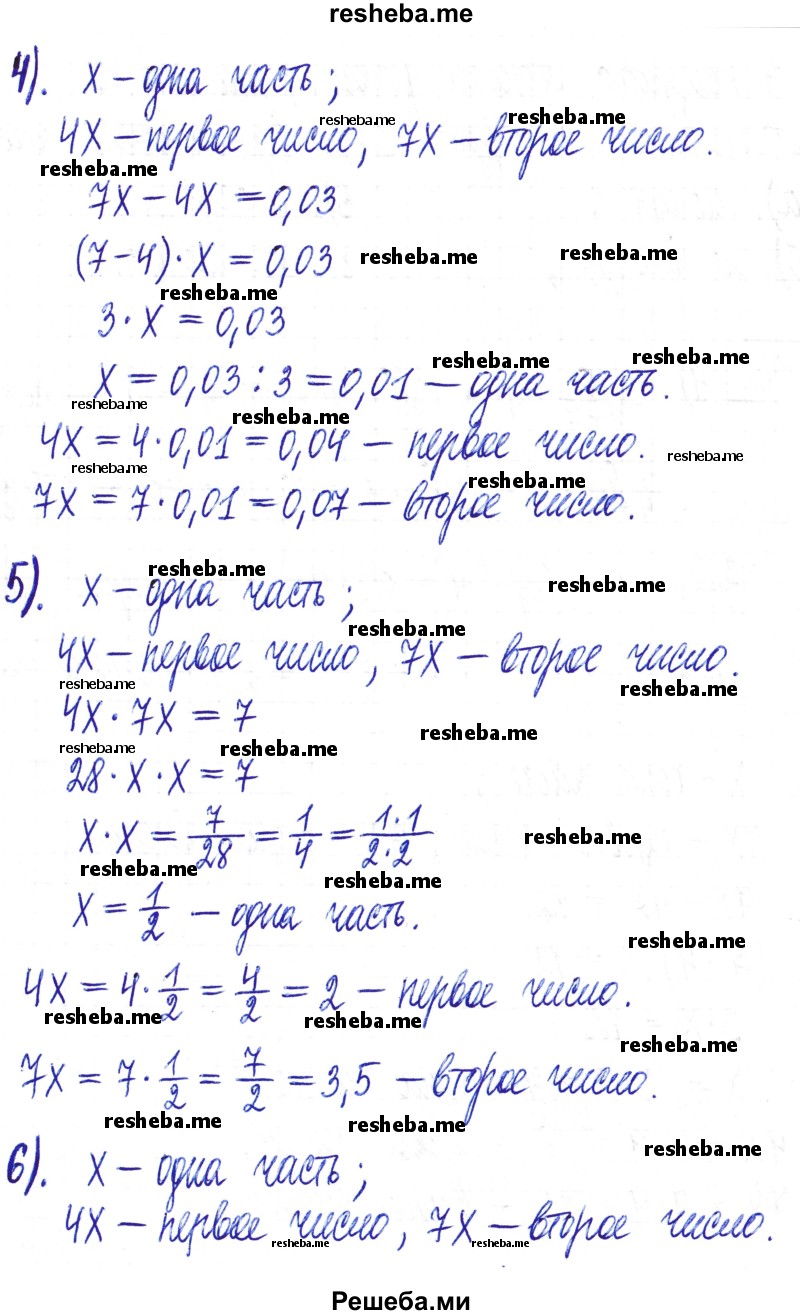 resheba.me
4). x – одна часть;
resheba.me resheba.me
4x – первое число, 7x – второе число.
resheba.me
7x – 4x = 0,03
(7–4)·x = 0,03 resheba.me resheba.me
resheba.me
3·x = 0,03
resheba.me resheba.me
x = 0,03 : 3 = 0,01 – одна часть.
resheba.me resheba.me
4x = 4·0,01 = 0,04 – первое число. resheba.me
resheba.me resheba.me
7x = 7·0,01 = 0,07 – второе число.
resheba.me resheba.me
5). x – одна часть;
resheba.me
4x – первое число, 7x – второе число.
resheba.me resheba.me
4x·7x = 7 resheba.me
resheba.me resheba.me
28·x·x = 7
x·x = 7/28 = 1/4 = 1·1/2·2 resheba.me
resheba.me resheba.me
x = 1/2 – одна часть.
resheba.me
4x = 4·1/2 = 4/2 = 2 – первое число.
resheba.me resheba.me
resheba.me
7x = 7·1/2 = 7/2 = 3,5 – второе число.
resheba.me resheba.me
resheba.me
6). x – одна часть;
4x – первое число, 7x – второе число.
resheba.me resheba.me
Решеба.ми